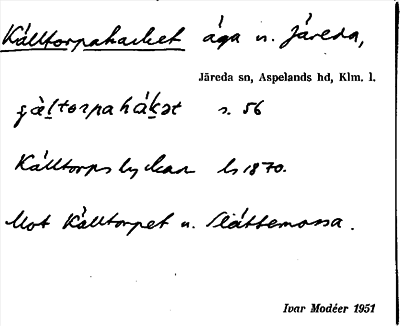 Källtorpahacket äga u. Järeda,
Järeda sn, Aspelands hd, Klm. l.
s. 56
Källtorps lyckan ls 1870.
Mot Källtorpet u. Slättemossa.
Ivar Modéer 1951